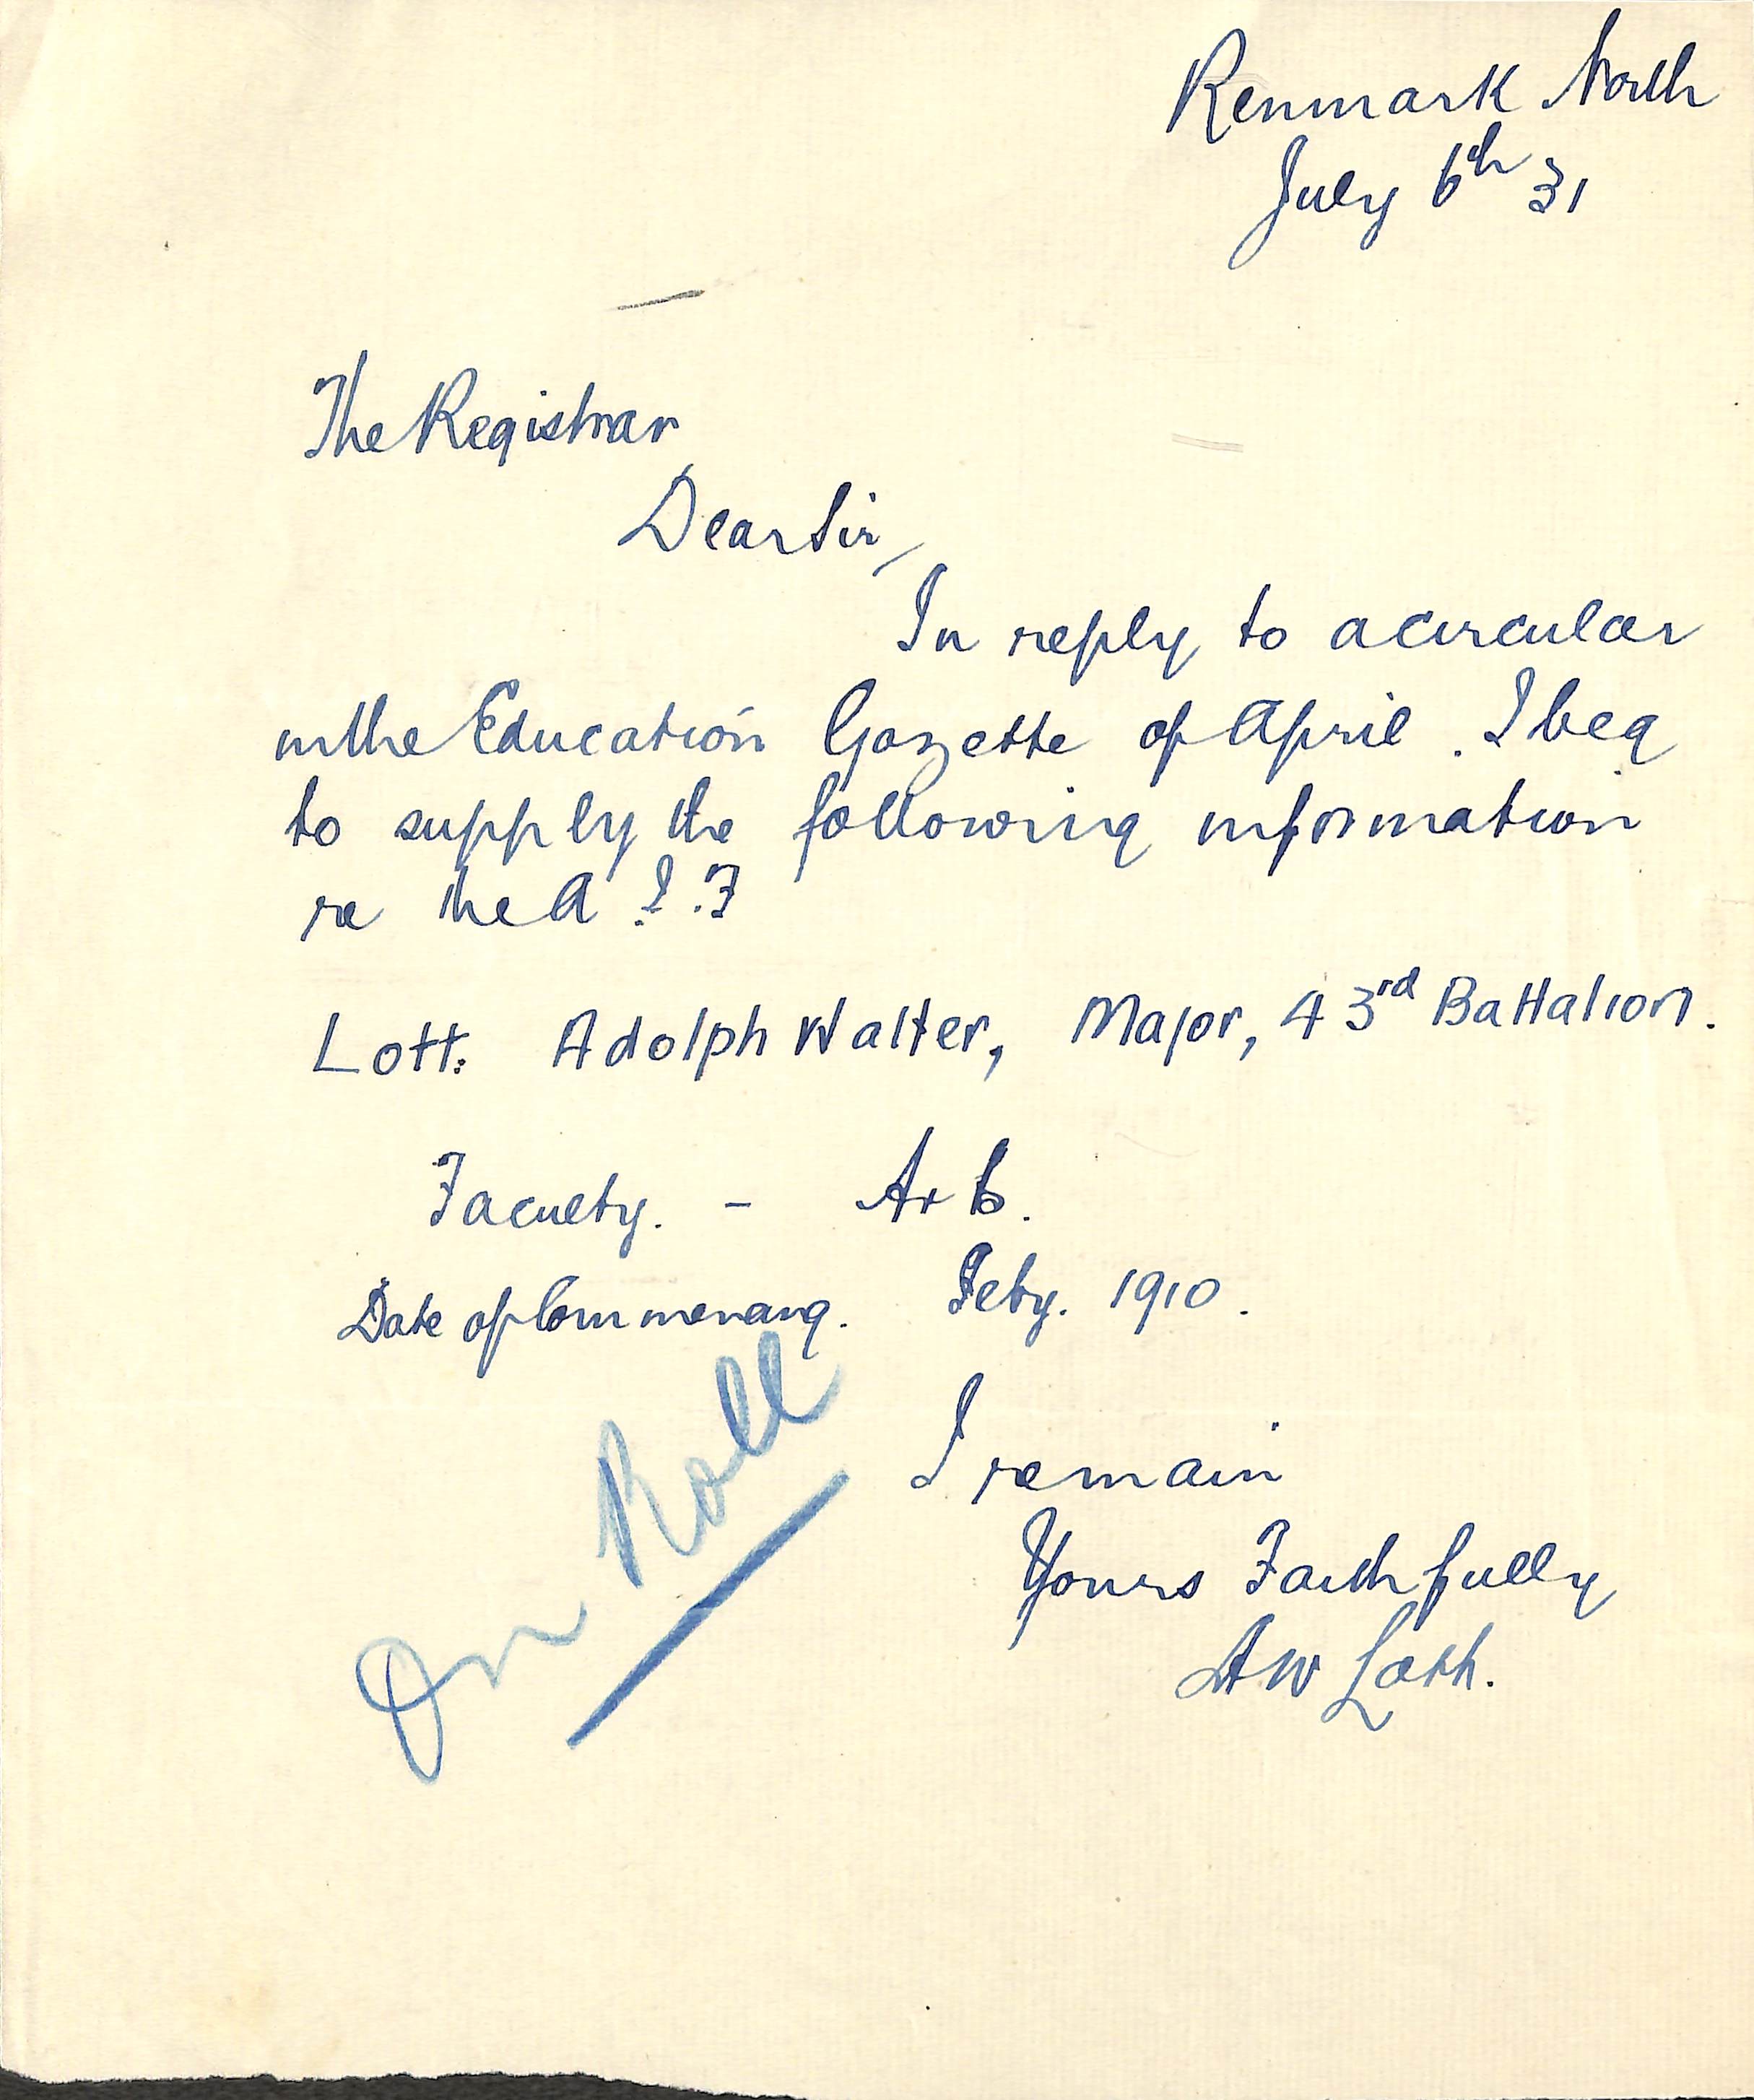 Renmark North
July 6th 31
The Registrar
Dear Sir,
In reply to a circular
in the Education Gazette of April. I beg
to supply the following information
re the A.I.F
Lott: Adolph Walter, Major, 43rd Battalion.
Faculty. - Arts.
Date of Commencing. Feby. 1910.
On Roll
I remain
Yours Faithfully
AW Lott.